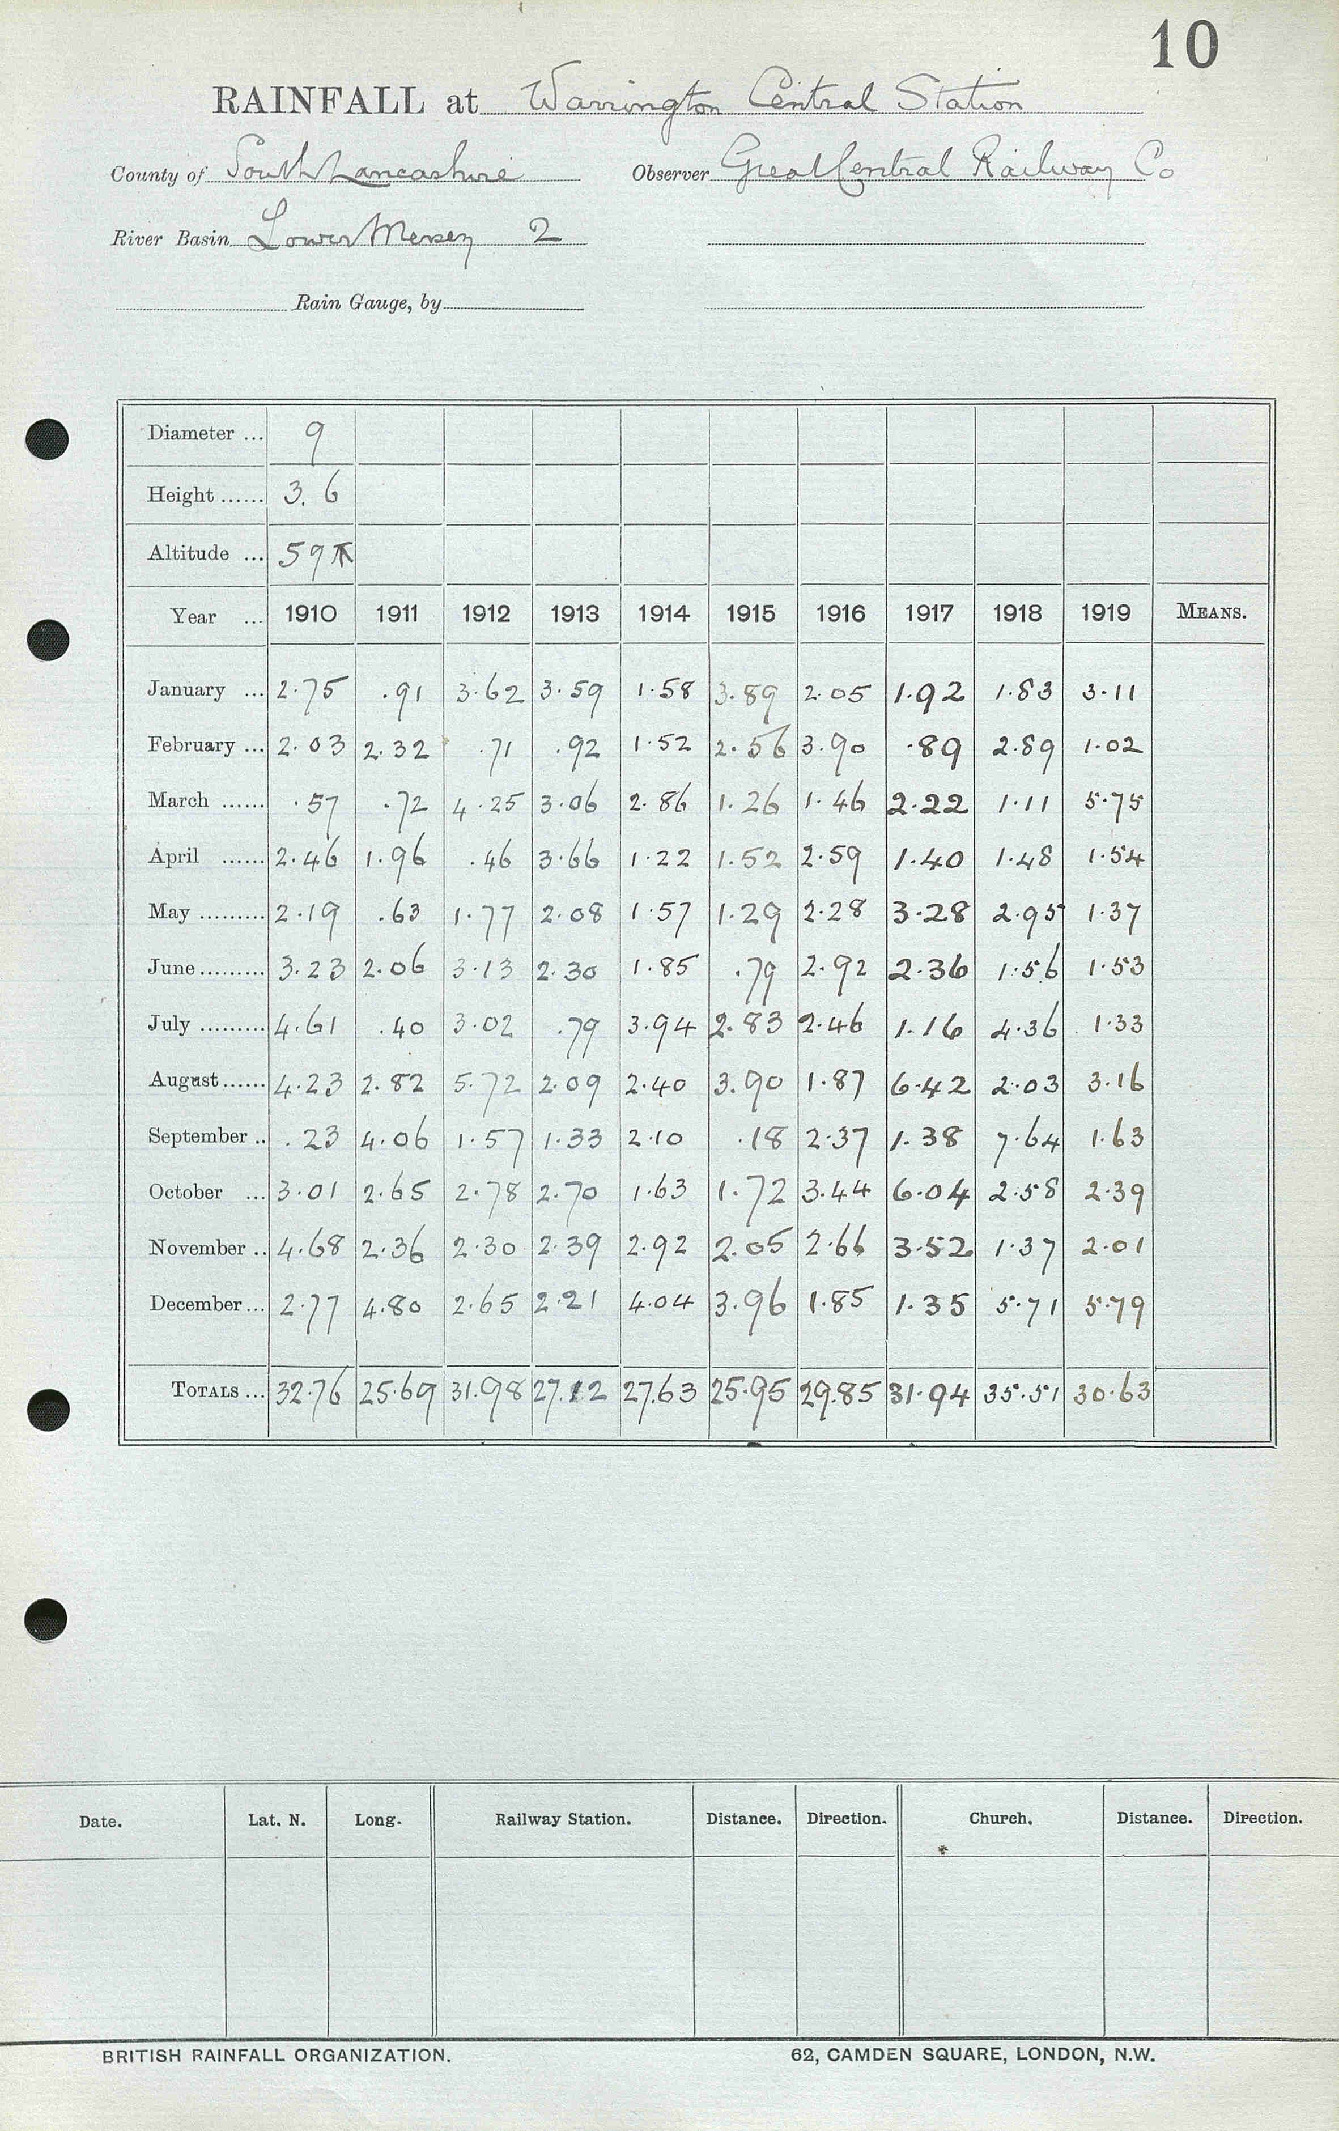 10
RAINFALL at Warrington Central Station
County of South Lancashire Observer Great Central Railway Co
River Basin Lower Mersey 2
Rain Gauge, by
Diameter ... 9
Height ...... 3. 6
Altitude ... 59
Year ... 1910 1911 1912 1913 1914 1915 1916 1917 1918 1919 MEANS.
January ... 2.75 .91 3.62 3.59 1.58 3.89 2.05 1.92 1.83 3.11
February ... 2.03 2.32 .71 .92 1.52 2.56 3.90 .89 2.89 1.02
March ...... .57 .72 4.25 3.06 2.86 1.26 1.46 2.22 1.11 5.75
April ...... 2.46 1.96 .46 3.66 1.22 1.52 2.59 1.40 1.48 1.54
May ......... 2.19 .63 1.77 2.08 1.57 1.29 2.28 3.28 2.95 1.37
June ......... 3.23 2.06 3.13 2.30 1.85 .79 2.92 2.36 1.56 1.53
July ......... 4.61 .40 3.02 .79 3.94 2.83 2.46 1.16 4.36 1.33
August ...... 4.23 2.82 5.72 2.09 2.40 3.90 1.87 6.42 2.03 3.16
September .. .23 4.06 1.57 1.33 2.10 .18 2.37 1.38 7.64 1.63
October ... 3.01 2.65 2.78 2.70 1.63 1.72 3.44 6.04 2.58 2.39
November .. 4.68 2.36 2.30 2.39 2.92 2.05 2.66 3.52 1.37 2.01
December ... 2.77 4.80 2.65 2.21 4.04 3.96 1.85 1.35 5.71 5.79
TOTALS ... 32.76 25.69 31.98 27.12 27.63 25.95 29.85 31.94 35.51 30.63
Date. Lat. N. Long. Railway Station. Distance. Direction. Church. Distance. Direction.
BRITISH RAINFALL ORGANIZATION. 62, CAMDEN SQUARE, LONDON, N.W.